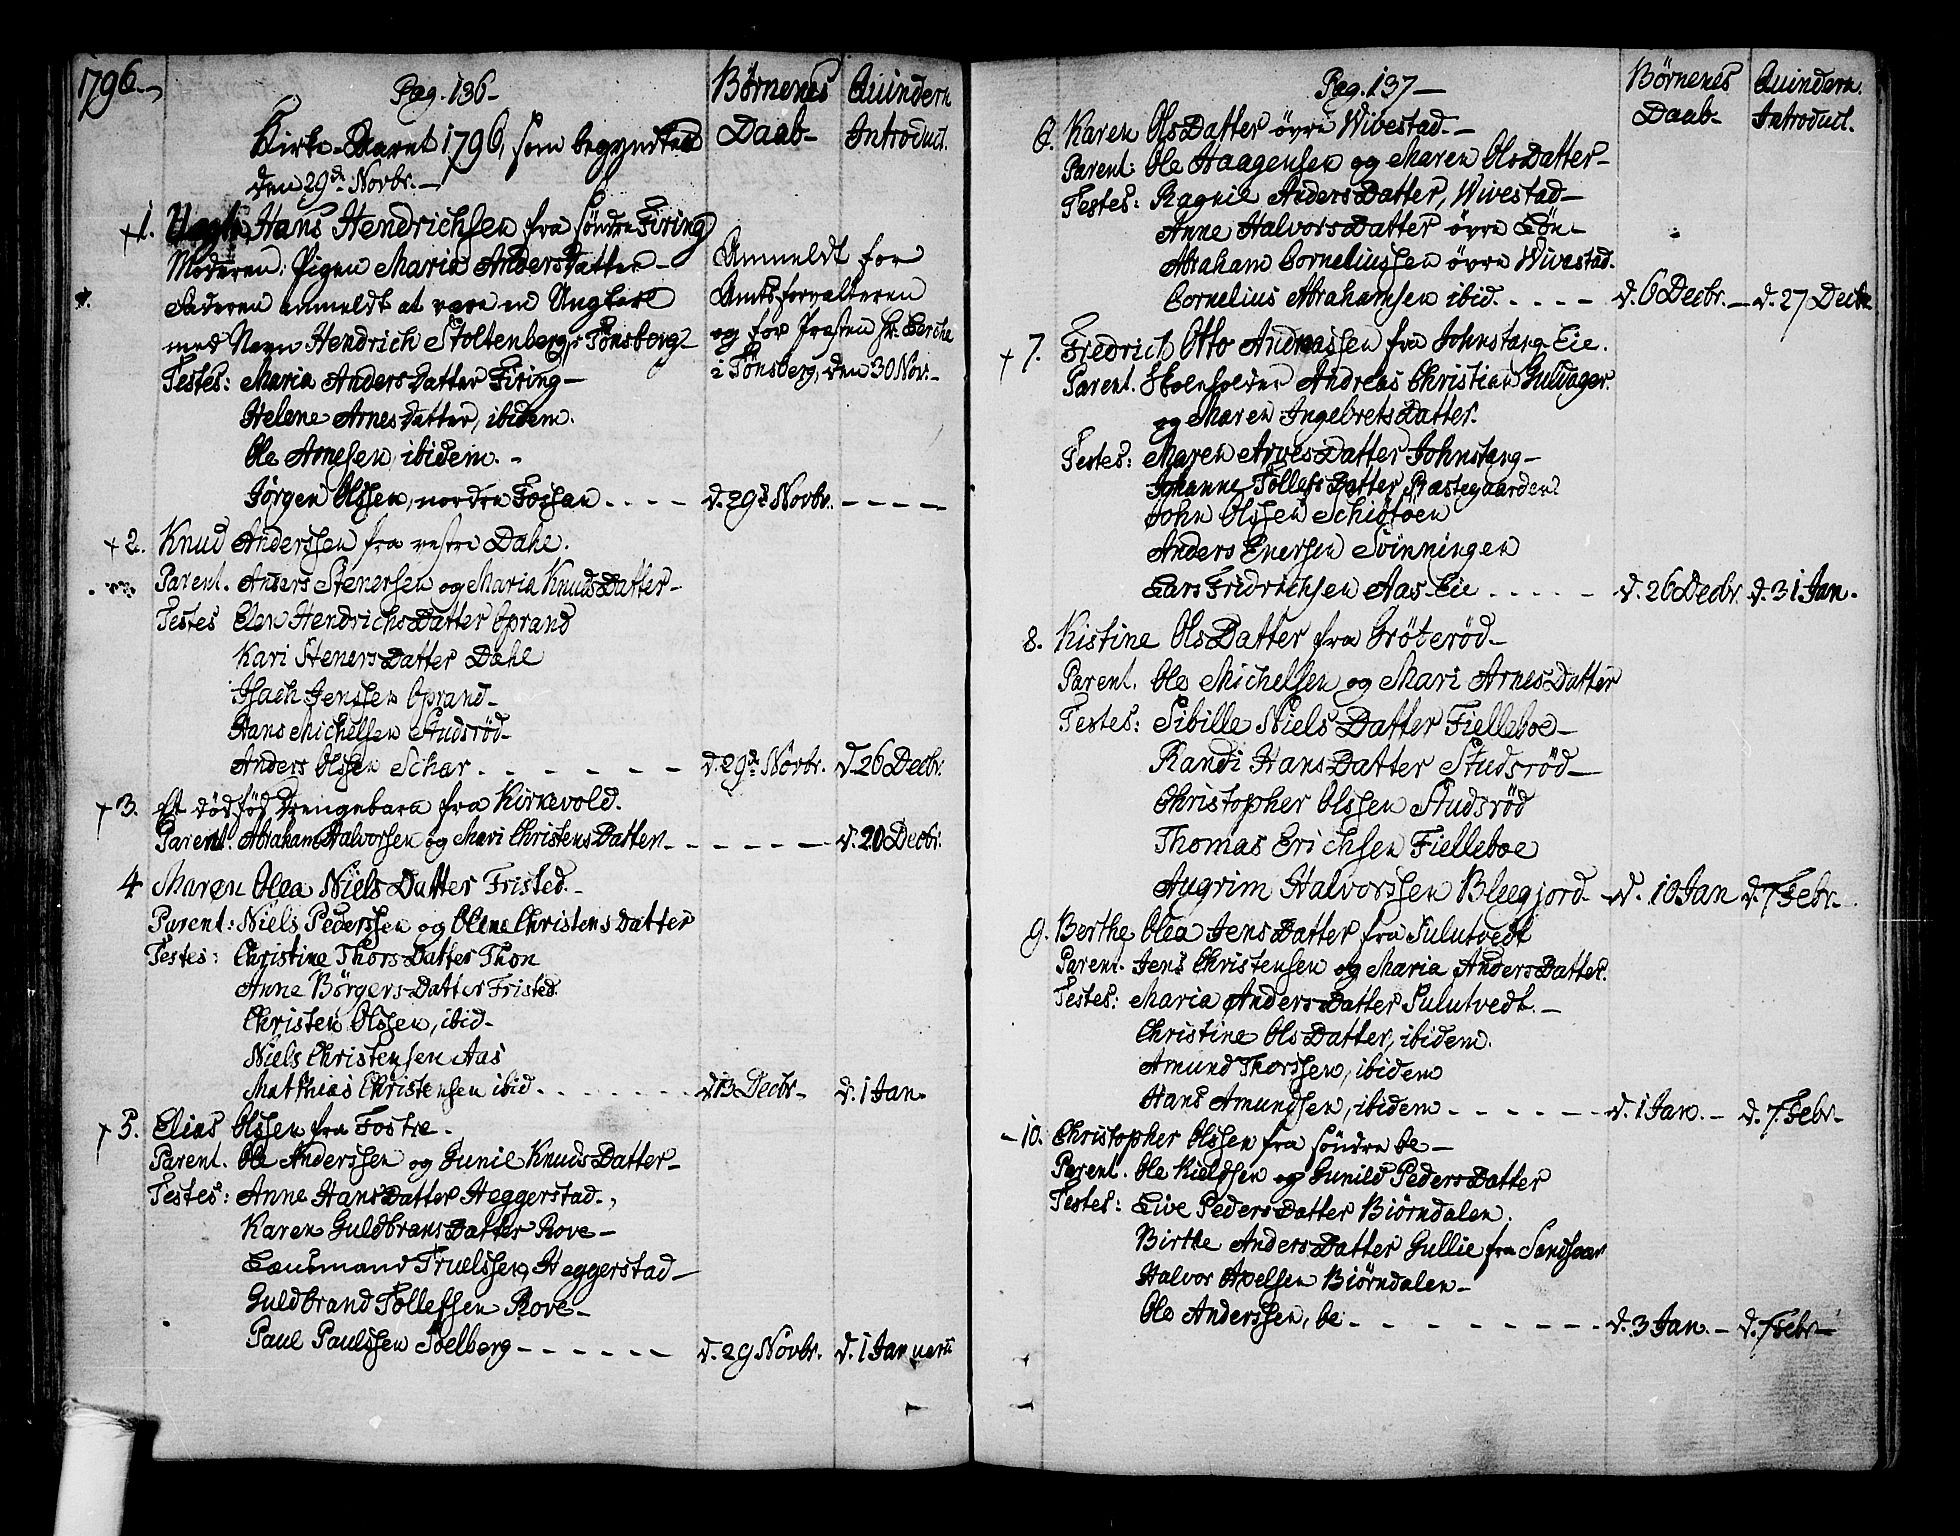 1796.
Pag. 136-
Børnenes Daab-
Quindern Introduct.
Kirke-Aaret 1796, som begyndtes
den 29d. Novbr.-
1. Uægte Hans Hendrichsen fra søndre Firing
Moderen: Pigen Maria AndersDatter-
Faderen anmeldt at være en Ungkarl
med Navn Hendrich Stoltenberg i Tønsberg
Anmeldt for
Amtsforvalteren
og for Præsten Hr.
i Tønsberg, den 30 Nov.-
Testes: Maria AndersDatter Firing-
Helene ArnesDatter, ibidem.
Ole Arnesen, ibidem.-
Jørgen Olssen, nordre Fossan.... d. 29d Novbr. - - - -
+2. Knud Anderssen fra vestre Dahl.
Parent. Anders Stenersen og Maria KnudsDatter-
Testes Elen HendrichsDatter Oprand
Kari StenersDatter Dahl
Isach Jenssen Oprand-
Hans Michelsen Studsrød-
Anders Olssen Schar. - - - - - d. 29d. Novbr. d. 26 Decbr.
+3. Et dødfød Drengebarn fra Kirkevold.
Parent. Abraham Halvorssen og Mari ChristensDatter. - - - - - d. 20 Decbr.
4 Maren Olea NielsDatter Fristed.-
Parent: Niels Pederssen og Olene ChristensDatter
Testes: Christine ThorsDatter Thon
Anne BörgersDatter Fristed
Christen Olssen, ibid-
Niels Christensen Aas
Matthias Christensen ibid. . . . . . . d. 13 Decbr- d. 1 Jan.
+5. Elias Olssen fra Fostre.
Parent. Ole Anderssen og Gunil KnudsDatter-
Testes: Anne HansDatter Heggerstad.,
Karen GuldbransDatter Rove-
Laurmand Truelssen, Heggerstad-
Guldbrand Tollefsen Rove-
Paul Paulssen Soelberg - - - - - - d. 29 Novbr. d. 1 Januarii
Pag. 137-
Børnenes Daab-
Quindern. Introduct.
6. Karen OlsDatter øvre Wivestad.-
Parent: Ole Haagensen og Maren OlsDatter-
Testes: Ragnil AndersDatter, Wivestad-
Anne HalvorsDatter øvre Løn-
Abraham Corneliussen øvre Wivestad.
Cornelius Abrahamsen ibid. . . . - d. 6 Decbr. - d. 27 Decbr
+7. Fredrich Otto Andreassen fra Johnstang Eie.
Parent. Skoleholder Andreas Christian Gulvager.
og Maren IngebretsDatter.
Testes: Maren ArvesDatter Johnstang-
Johanne TollefsDatter Præstegaarden
John Olssen Schiøtoen
Anders Enersen Svinningen
Lars Fridrichsen Aas Eie . . . . . d. 26 Decbr. d. 31 Jan.
8. Kistine OlsDatter fra Grøterød-
Parent. Ole Michelsen og Mari ArnesDatter
Testes: Sibille NielsDatter Fielleboe-
Randi HansDatter Studsrød-
Christopher Olssen Studsrød
Thomas Erichsen Fielleboe
Aygrim Halvorssen Bleegjord- d. 10 Jan d. 7 Febr.
9. Berthe Olea JensDatter fra Sulutvedt
Parent. Jens Christensen og Maria AndersDatter.
Testes: Maria AndersDatter Sulutvedt.-
Christine OlsDatter, ibidem.
Amund Thorssen, ibidem
Hans Amundsen, ibidem - - - - - d. 1 Jan. - d. 7. Febr-
-10. Christopher Olssen fra søndre Oe-
Parent. Ole Kieldsen og Gunild PedersDatter
Testes: Live PedersDatter Biørndalen.
Birthe AndersDatter Gullie fra Sandsvær
Halvor Axelsen Biørndalen-
Ole Anderssen, Oe - - - - - - - d. 3 Jan. - d. 7 Febr-